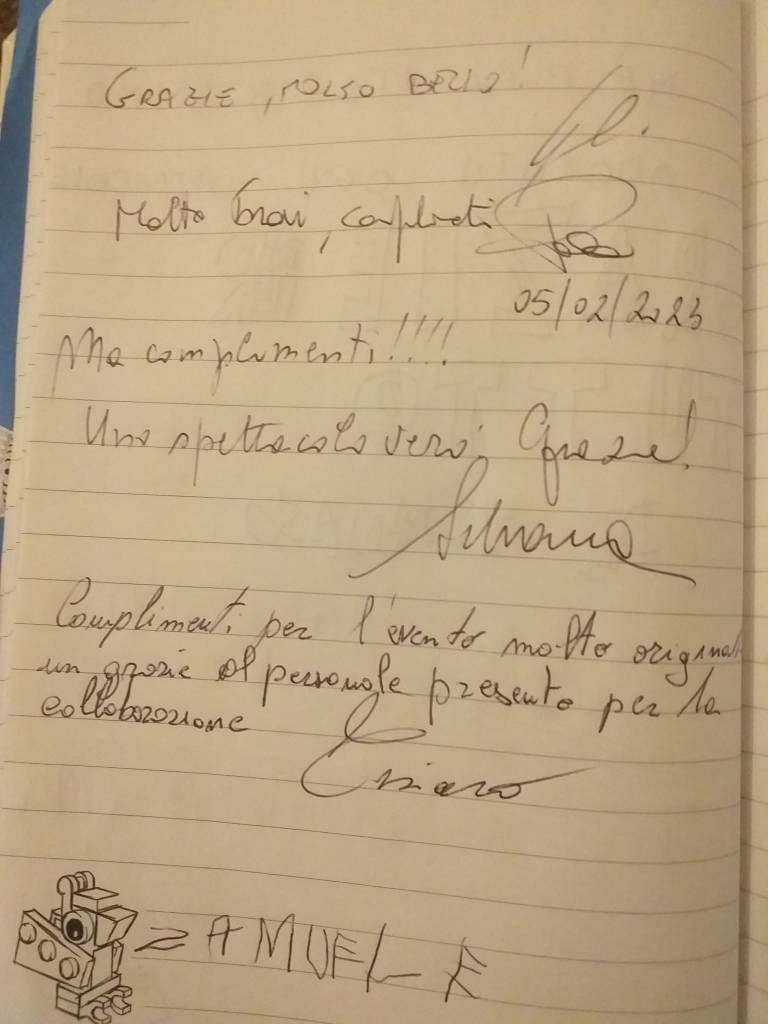 GRAZIE, MOLTO BELLO!
Molto bravi, complimenti
05/02/2023
Ma complimenti!!!!
Uno spettacolo vero. Grazie!
Silvana
Complimenti per l'evento molto original
un grazie al personale presente per la
collaborazione
Chiara
SAMUELE